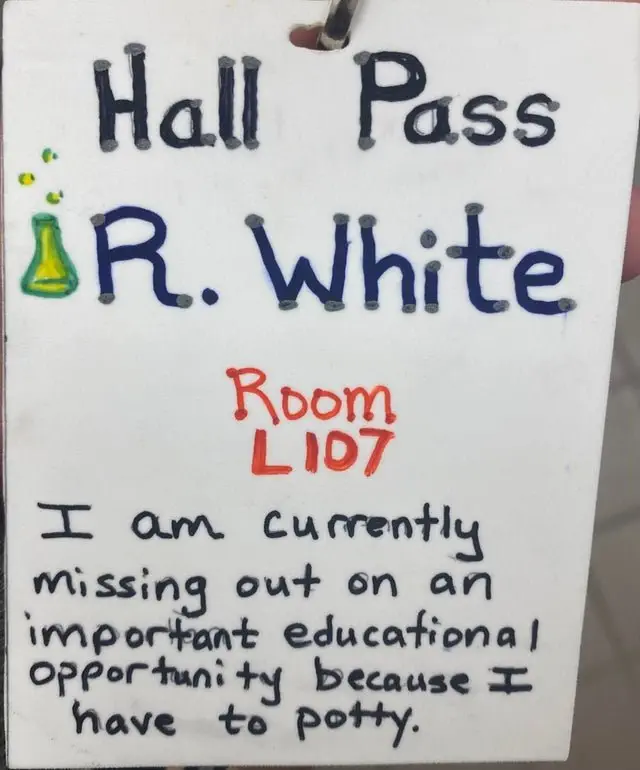 Hall Pass
R. White
Room
L107
I am currently
missing out on an
important educational
opportunity because I
have to potty.